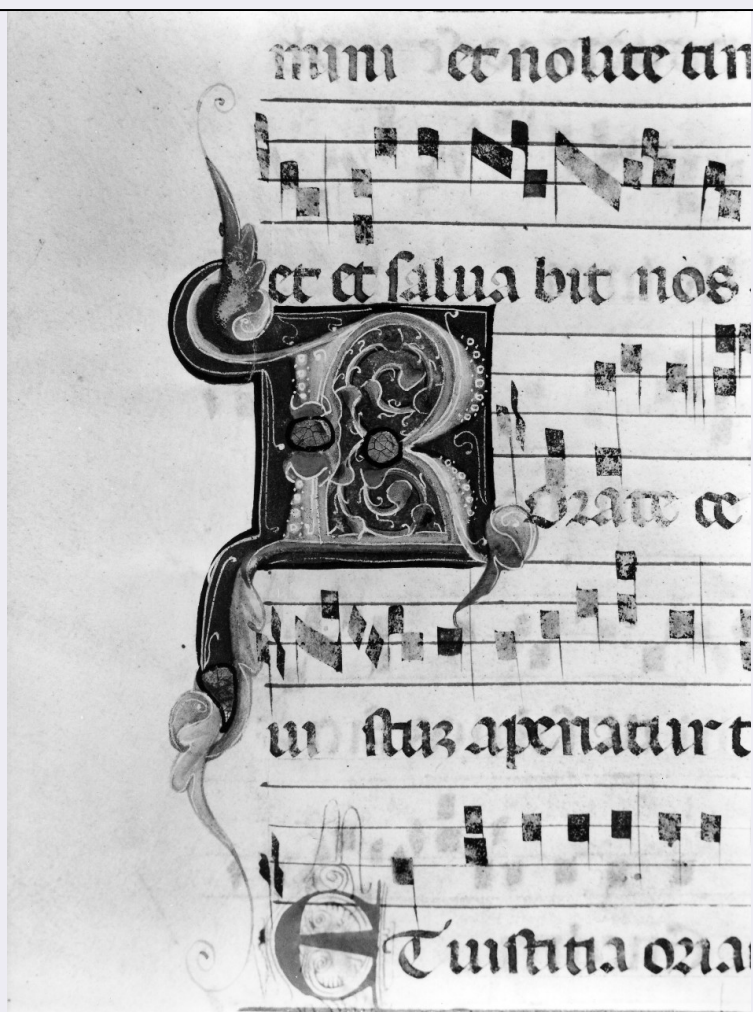 mini et nolite tim
et et salua bit nos
R orate ce
lu stuz aperiatur t
ET iustitia oria